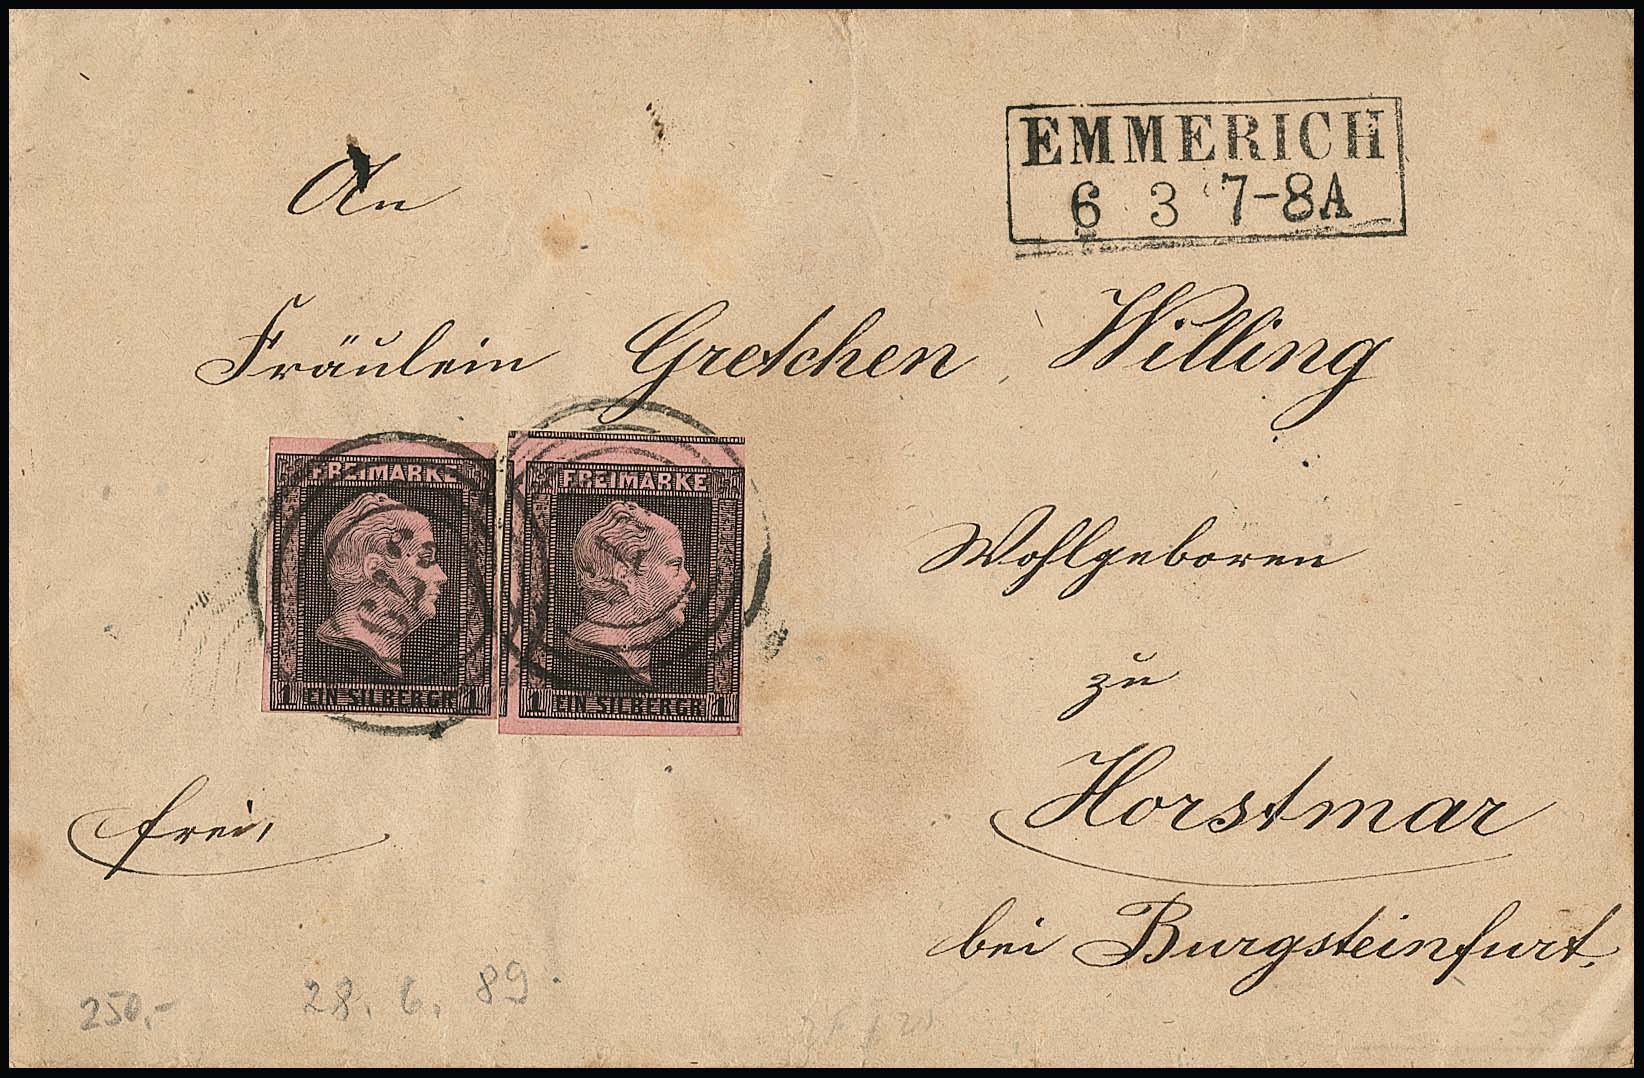 EMMERICH
6 3 7-8A
An
Fräulein Gretchen Willing
FREIMARKE
1 EIN SILBERGR 1
FREIMARKE
1 EIN SILBERGR 1
Wohlgeboren
zu
Horstmar
frei,
bei Burgsteinfurt.
250,-
28. 6. 89.